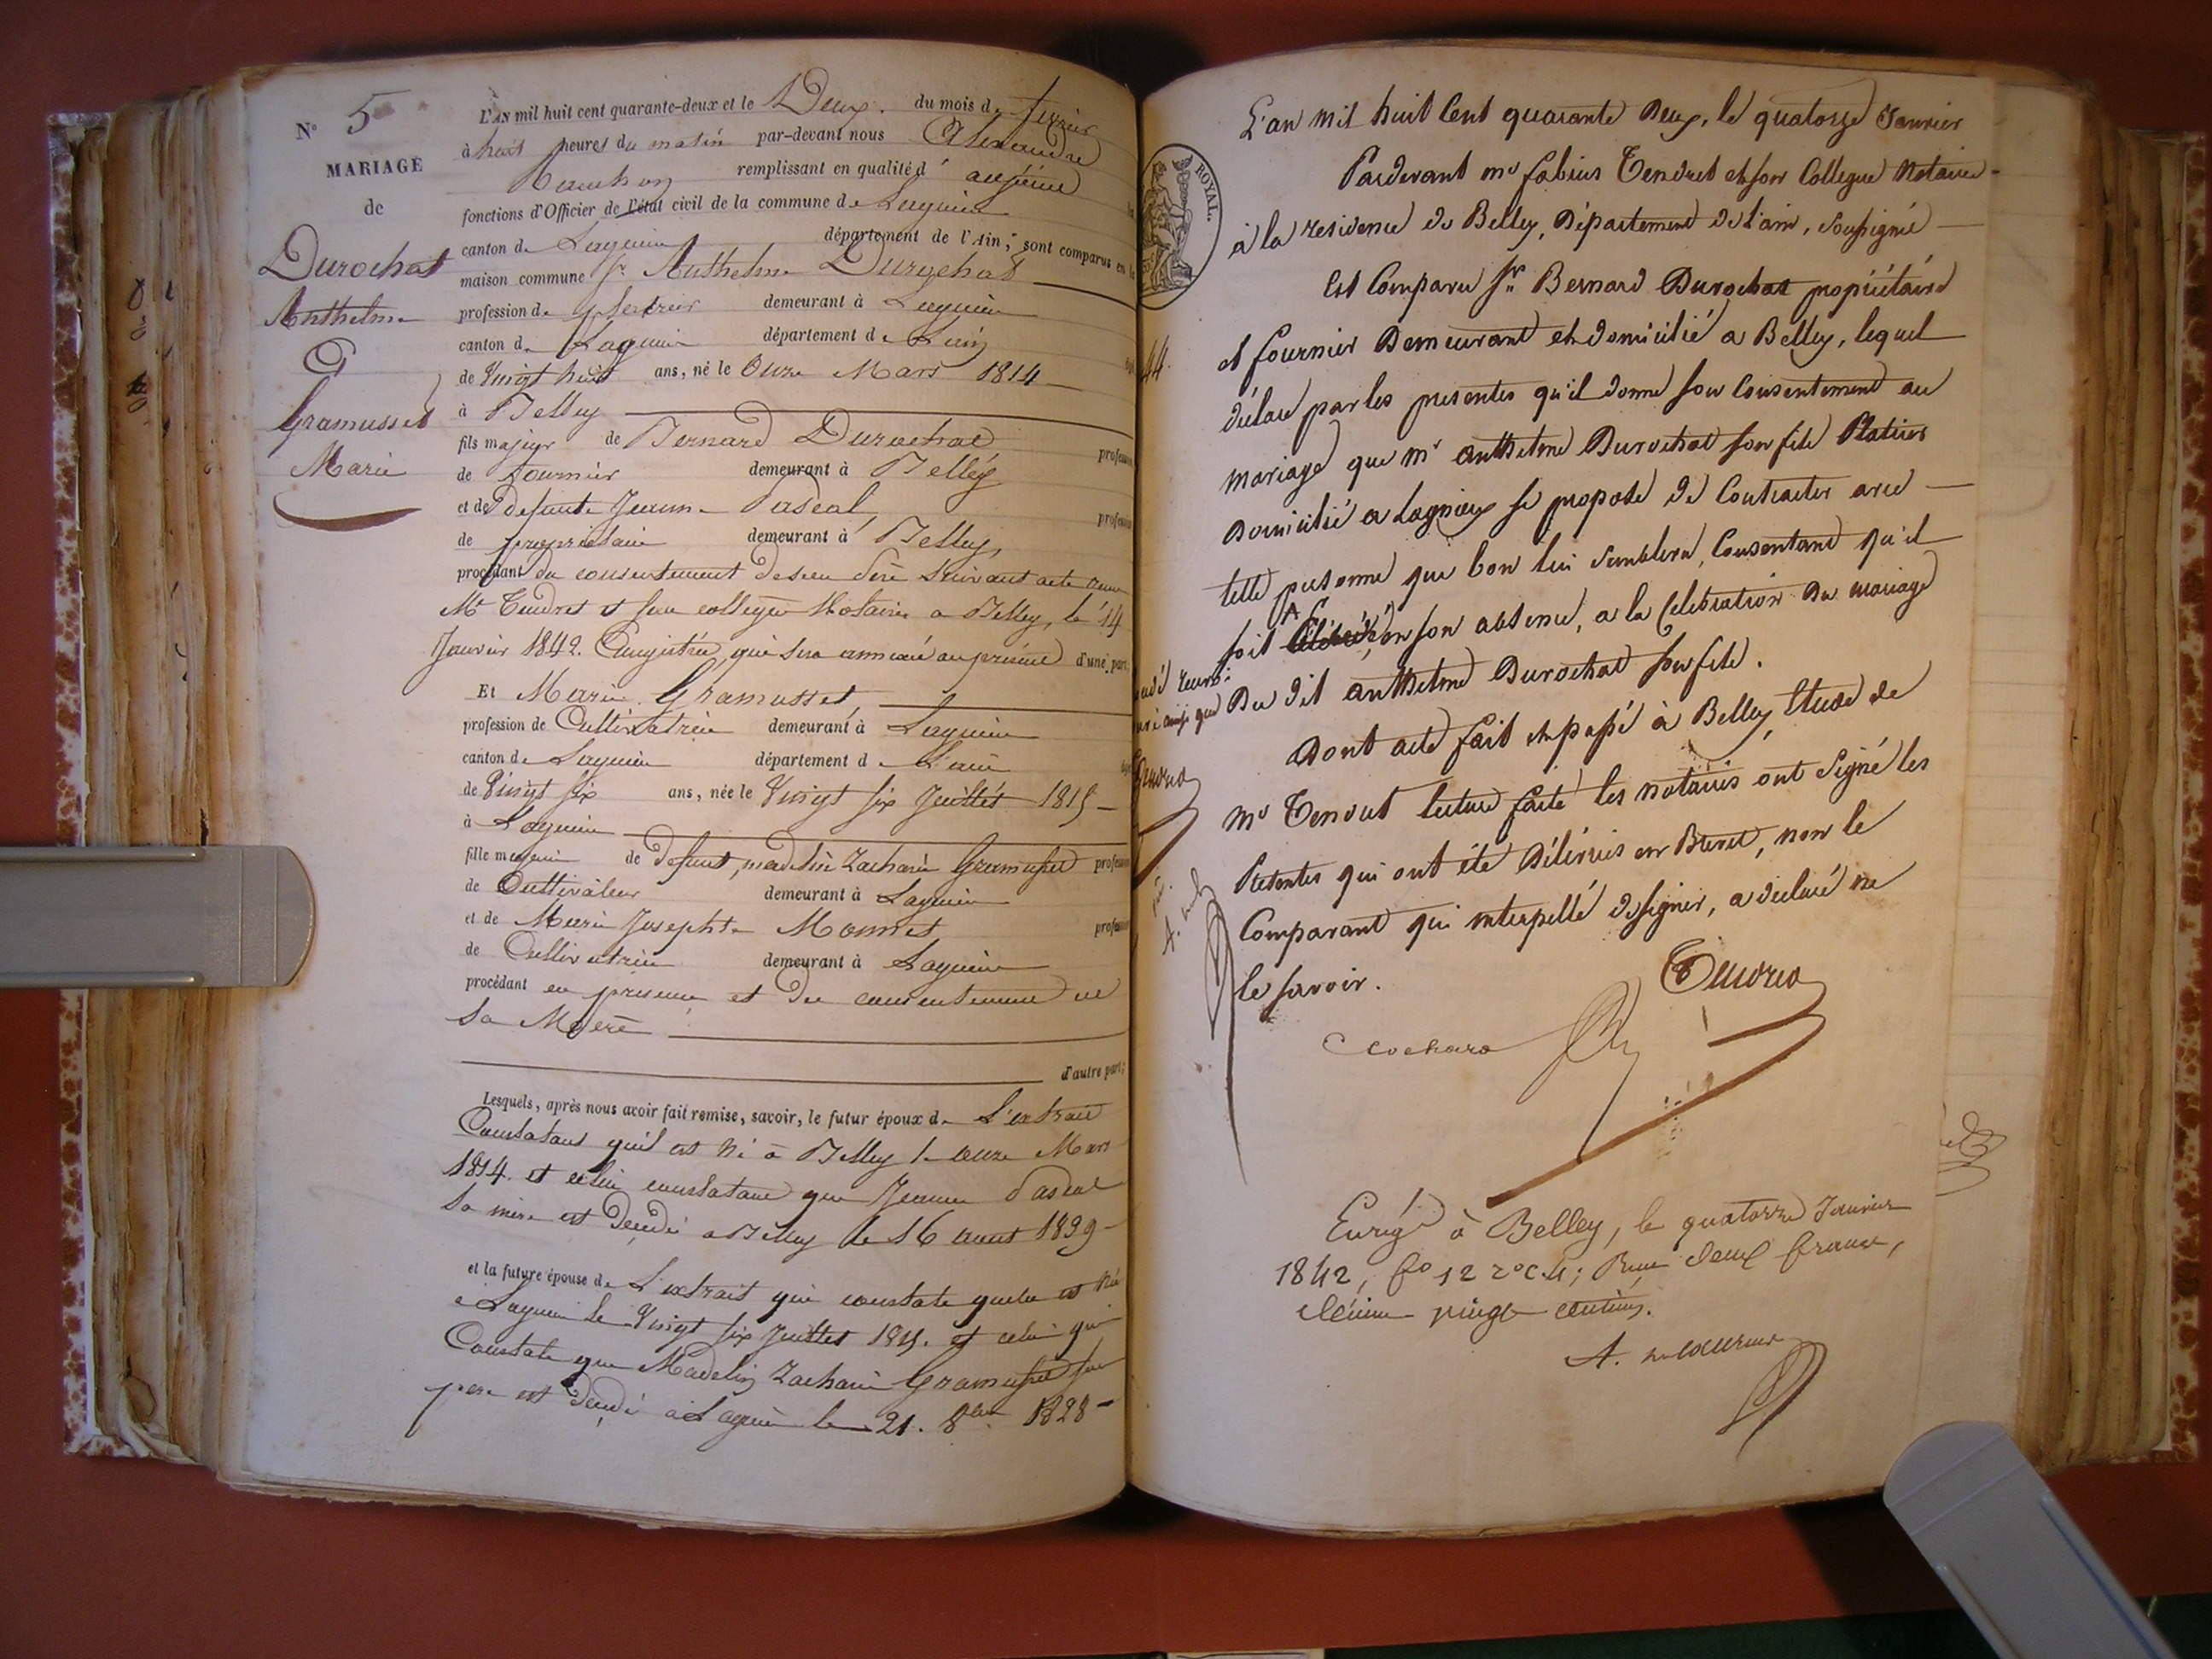 N° 5
MARIAGE
de
Durochat
Anthelme
Et
Gramusset
Marie
L'AN mil huit cent quarante-deux et le Deux du mois de février
à huit heures du matin par-devant nous Alexandre
remplissant en qualité d'
fonctions d'Officier de l'état civil de la commune de Lagnieu
canton de Lagnieu département de l'Ain, sont comparus en la
maison commune Sr Anthelme Durochat
profession de demeurant à Lagnieu
canton de Lagnieu département de L'ain
de Vingt huit ans, né le Onze Mars 1814
à Belley
fils majeur de Bernard Durochat profession
de fournier demeurant à Belley
et de defunte Jeanne Pascal profession
de propriétaire demeurant à Belley
procédant du consentement de son père suivant acte reçu
Me Tendret et son collegue Notaires a Belley, le 14
Janvier 1842. Enregistrée, qui sera annexée au présent d'une part,
Et Marie Gramusset
profession de Cultivatrice demeurant à Lagnieu
canton de Lagnieu département de L'ain
de Vingt six ans, née le Vingt six Juillet 1815
à Lagnieu
fille majeure de defunt, madelin Zacharie Gramusset profession
de Cultivateur demeurant à Lagnieu
et de Marie Josephte Monnet profession
de Cultivatrice demeurant à Lagnieu
procédant en presence et du consentement de
sa Mere
d'autre part;
Lesquels, après nous avoir fait remise, savoir, le futur époux de L'extrait
Constatant qu'il est né à Belley le onze Mars
1814. et celui constatant que Jeanne Pascal
sa mere est décédé a Belley le 16 aout 1839
et la future épouse de L'extrait qui constate quelle est née
a Lagnieu le Vingt six Juillet 1815. et celui qui
Constate que Madelin Zacharie Gramusset son
pere est décédé a Lagnieu le 21. 8bre 1828
ROYAL.
L'an mil huit Cent quarante Deux, le quatorze Janvier
Pardevant me fabius Tendret et son Collegue Notaires
à la residence de Belley, Département de L'ain, soussignés
Est Comparu Sr Bernard Durochat propriétaire
et fournier Demeurant et domicilié a Belley, lequel
déclare par les presentes qu'il donne son Consentement au
mariage que mr anthelme Durochat son fils Platrier
Domicilié a Lagnieu se propose de Contracter avec
telle personne que bon lui semblera, Consentant qu'il
soit en son absence, a la Celebration du mariage
Du dit anthelme Durochat son fils.
Dont acte fait et passé à Belley, Etude de
me Tendret lecture faite les notaires ont signé les
Presentes qui ont été Délivrées en Brevet, non le
Comparant qui interpellé de signer, a déclaré ne
le savoir.
Tendret
Cochard
Enregé à Belley, le quatorze Janvier
1842, fo 12 ro c.4; Reçu deux francs,
décime vingt centimes.